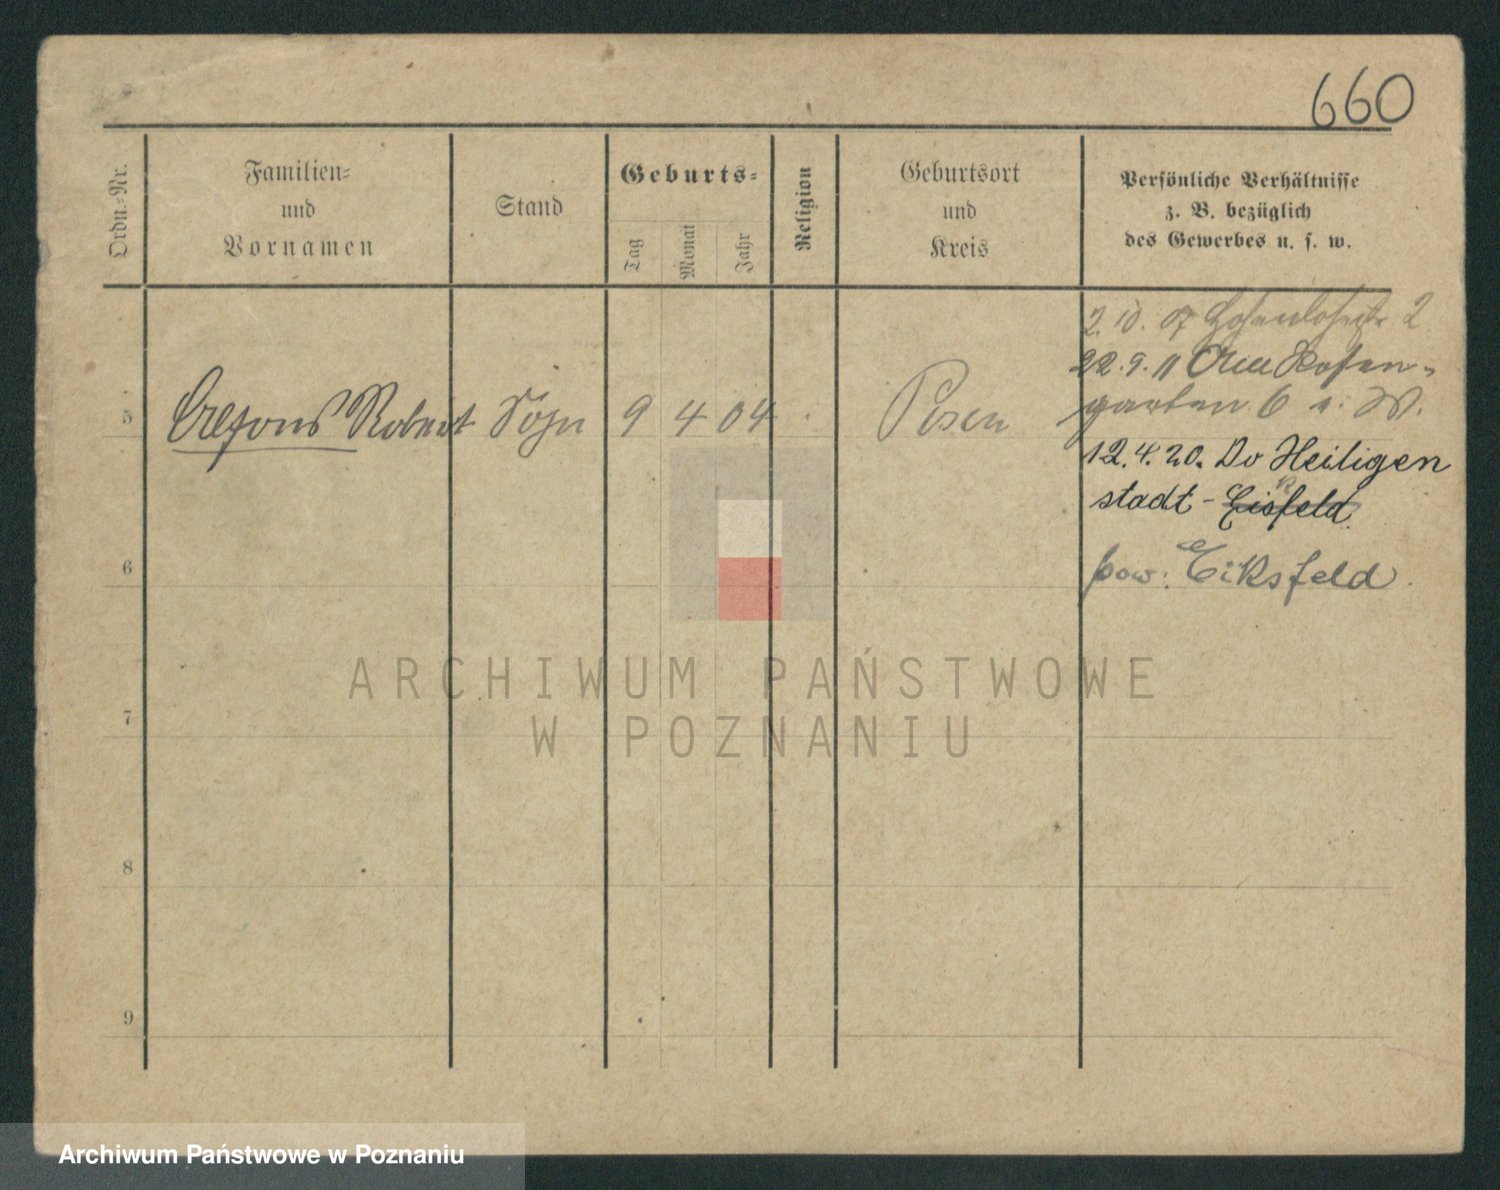 660
Ordn.-Nr.
Familien-
und
Vornamen
Stand
Geburts-
Tag
Monat
Jahr
Religion
Geburtsort
und
Kreis
Persönliche Verhältnisse
z. B. bezüglich
des Gewerbes u. s. w.
2.10.07 Hohenlohestr 2
22.9.11 Am Rosen-
garten 6 W.
5 Alfons Robert Sohn 9 4 04 Posen
12.4.20. Do Heiligen
stadt - Eisfeld
pow. Eiksfeld
6
7
8
9
ARCHIWUM PAŃSTWOWE
W POZNANIU
Archiwum Państwowe w Poznaniu